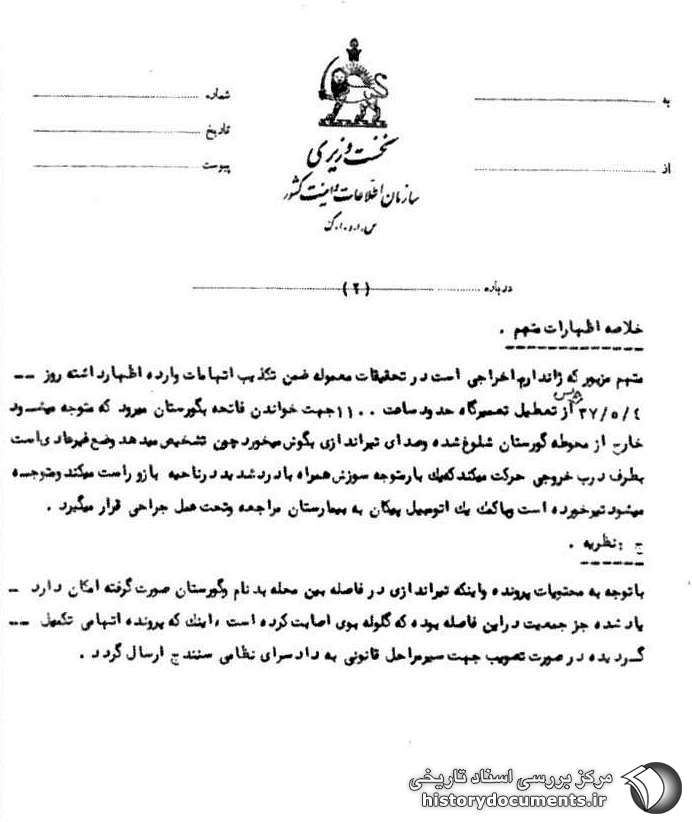 به
شماره
تاریخ
از
پیوست
نخست وزیری
سازمان اطلاعات و امنیت کشور
س.ا.و.ا.ک
درباره (۲)
خلاصه اظهارات متهم .
متهم مزبور که ژاندارم اخراجی است در تحقیقات معموله ضمن تکذیب اتهامات وارده اظهار داشته روز --
۳۷/۵/٤ پس از تعطیل تعمیرگاه حدود ساعت ۱۱۰۰ جهت خواندن فاتحه بگورستان میرود که متوجه میشود
خارج از محوطه گورستان شلوغ شده وصدای تیراندازی بگوش میخورد چون تشخیص میدهد وضع غیرعادی است
بطرف درب خروجی حرکت میکند که یك بار متوجه سوزش همراه با درد شدید در ناحیه بازو راست میکند ومتوجه
میشود تیرخورده است وباکمك یك اتومبیل پیکان به بیمارستان مراجعه وتحت عمل جراحی قرار میگیرد .
ج : نظریه .
باتوجه به محتویات پرونده واینکه تیراندازی در فاصله بین محله بدنام وگورستان صورت گرفته امکان دارد --
یاد شده جز جمعیت دراین فاصله بوده که گلوله بوی اصابت کرده است ، اینك که پرونده اتهامی تکمیل --
گردیده در صورت تصویب جهت سیر مراحل قانونی به دادسرای نظامی سنندج ارسال گردد .
مرکز بررسی اسناد تاریخی
historydocuments.ir